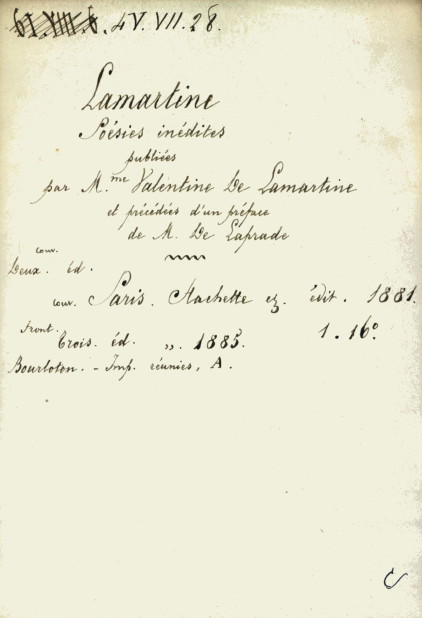 61.XIII.6. 4V.VII.28.
Lamartine
Poésies inédites
publiées
par M.me Valentine De Lamartine
et précédées d'un préface
de M. De Laprade
couv.
Deux. éd.
couv. Paris. Hachette ez. édit. 1881.
Front.
Trois. éd. „. 1885. 1. 16°
Bourloton. - Imp. réunies, A.
C